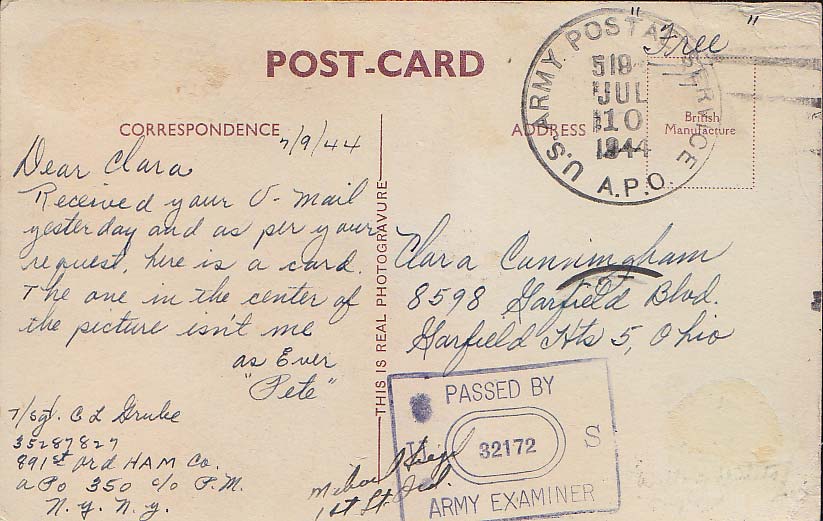 "Free"
POST-CARD
U.S. ARMY POSTAL SERVICE
A.P.O.
519
JUL
10
1944
British
Manufacture
CORRESPONDENCE
ADDRESS
7/9/44
Dear Clara
Received your V-Mail
yesterday and as per your
request, here is a card.
The one in the center of
the picture isn't me
as Ever
"Pete"
T/Sgt. C L Grube
35287827
891st Ord HAM Co.
APO 350 c/o P.M.
N.Y. N.Y.
THIS IS REAL PHOTOGRAVURE
Clara Cunningham
8598 Garfield Blvd.
Garfield Hts 5, Ohio
PASSED BY
S
32172
ARMY EXAMINER
1st Lt.